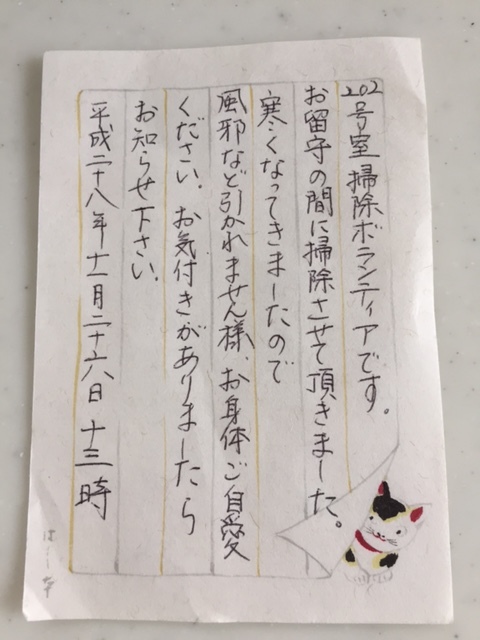 202号室掃除ボランティアです。
お留守の間に掃除させて頂きました。
寒くなってきましたので
風邪など引かれません様、お身体ご自愛
ください。お気付きがありましたら
お知らせ下さい。
平成二十八年十一月二十六日 十三時